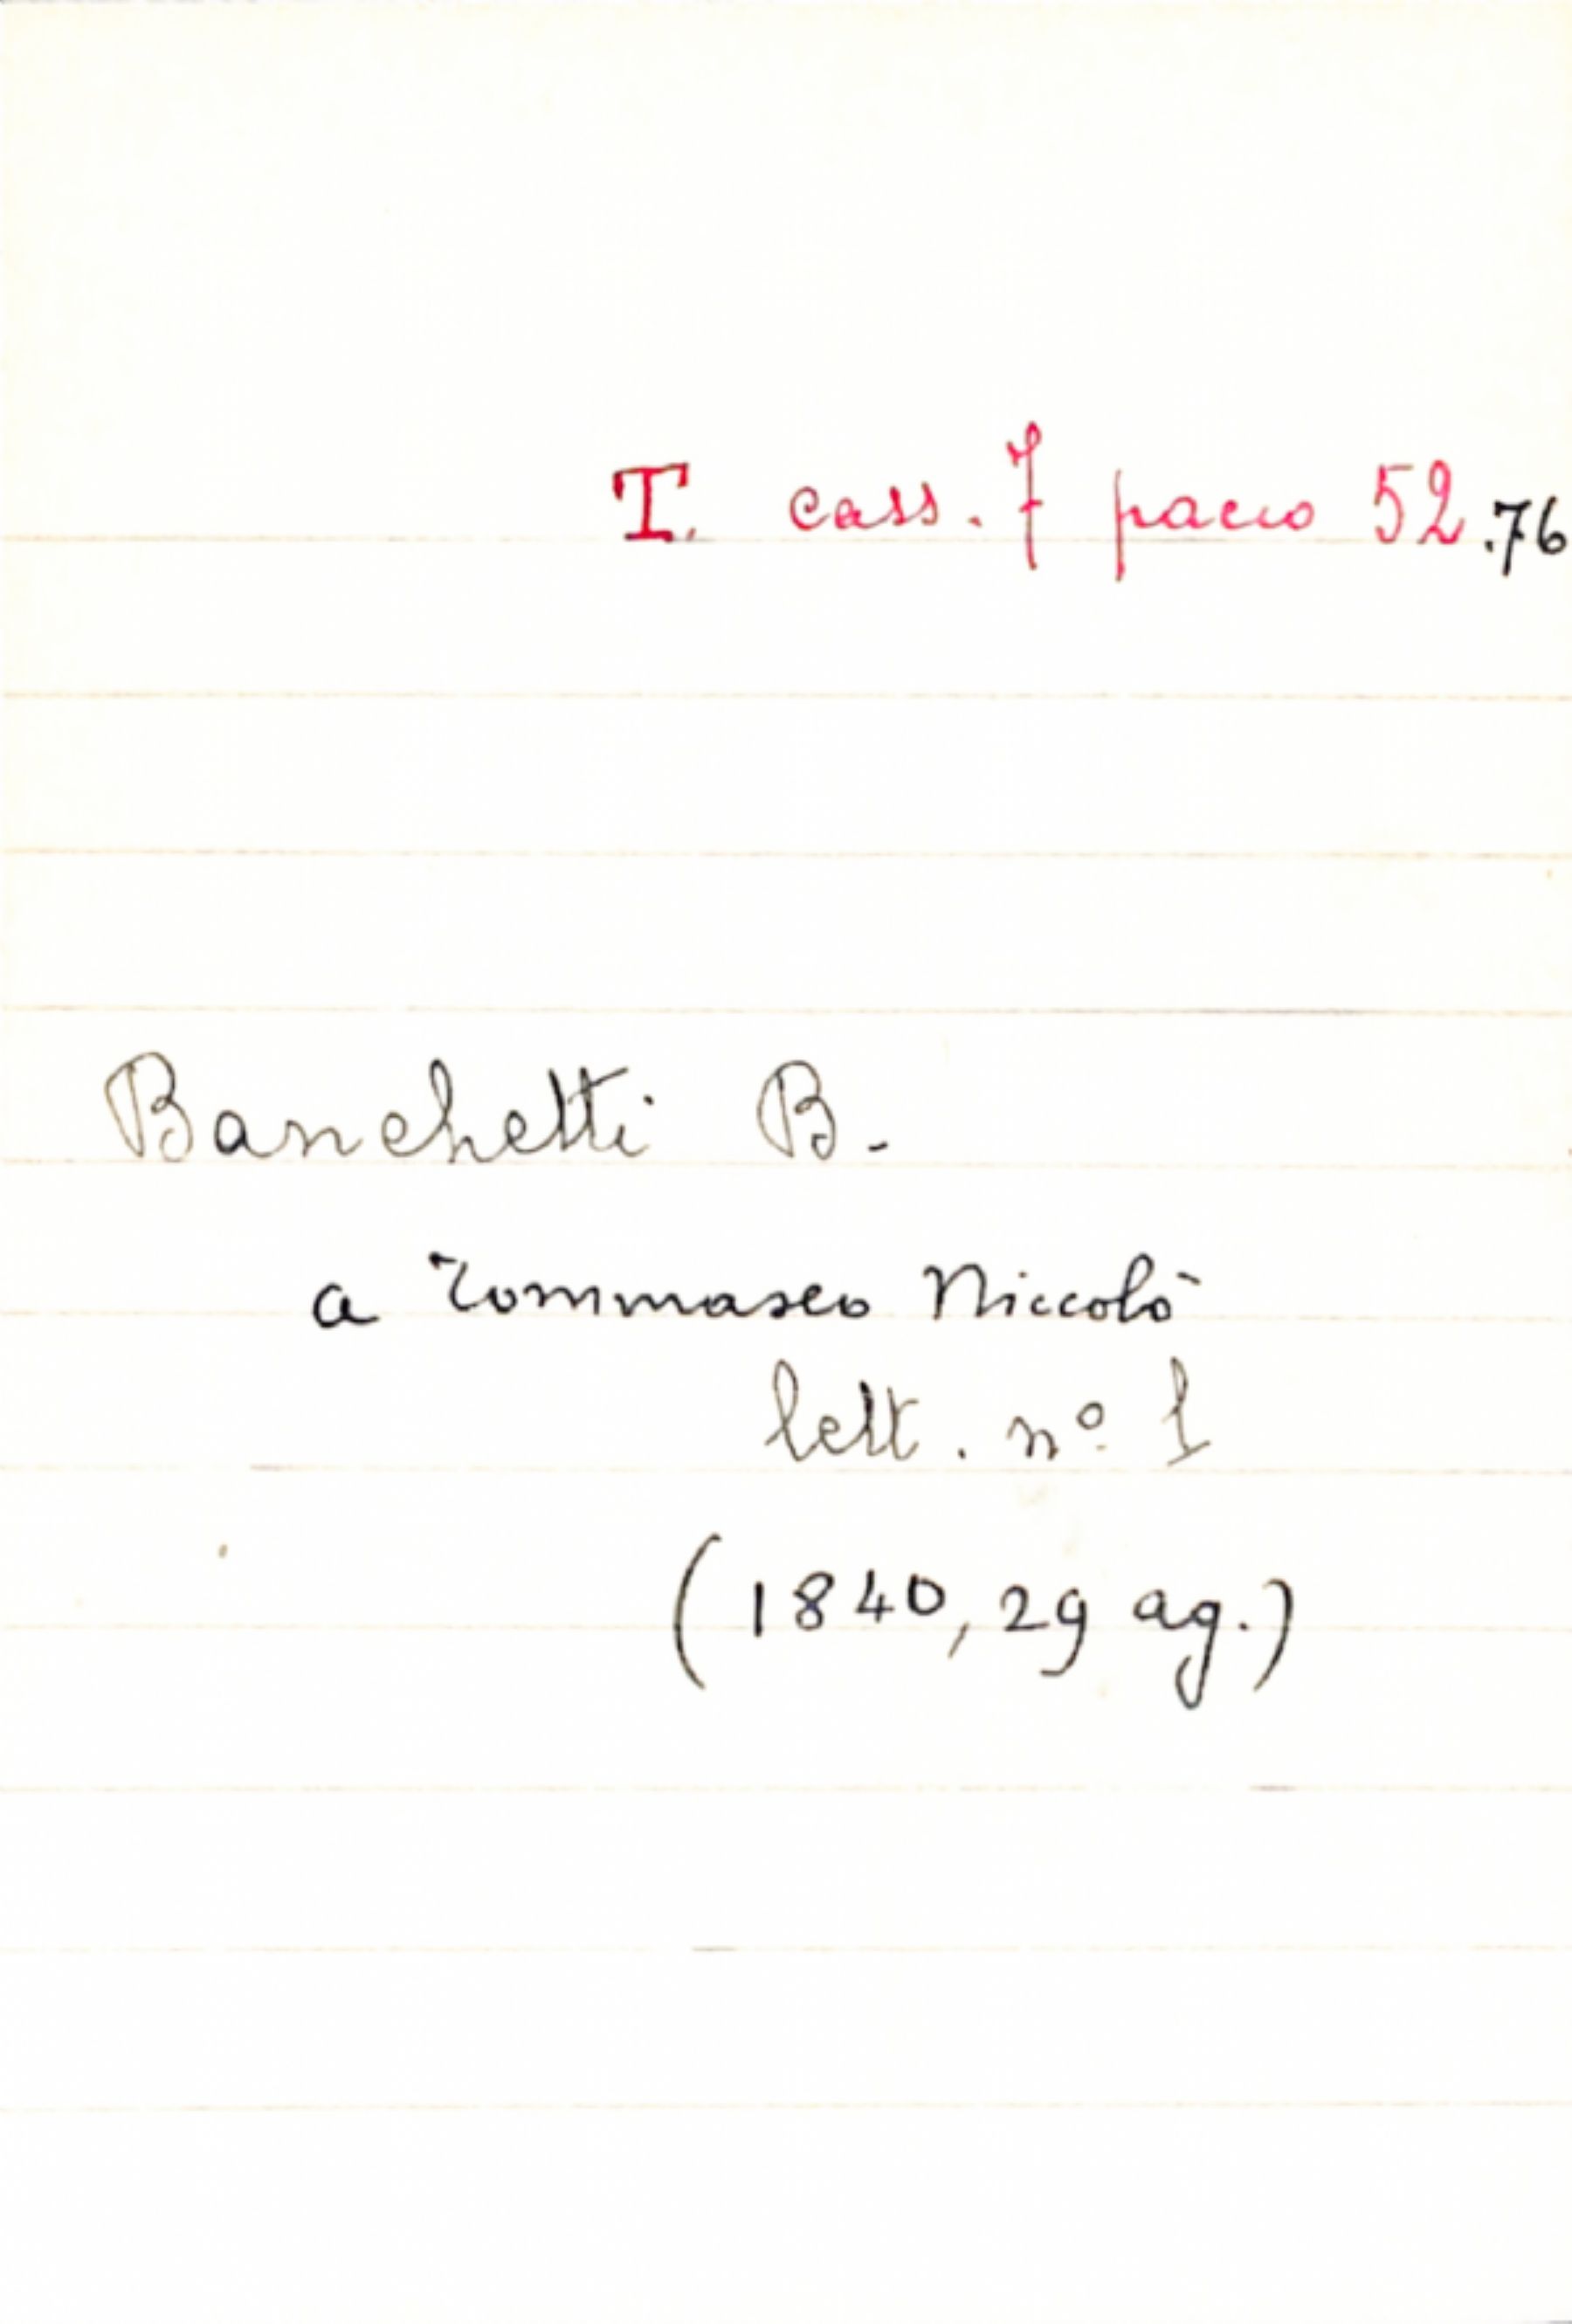 T. cass. 7 pacco 52.76
Banchetti B.
a Tommaseo Niccolò
lett. nº 1
(1840, 29 ag.)